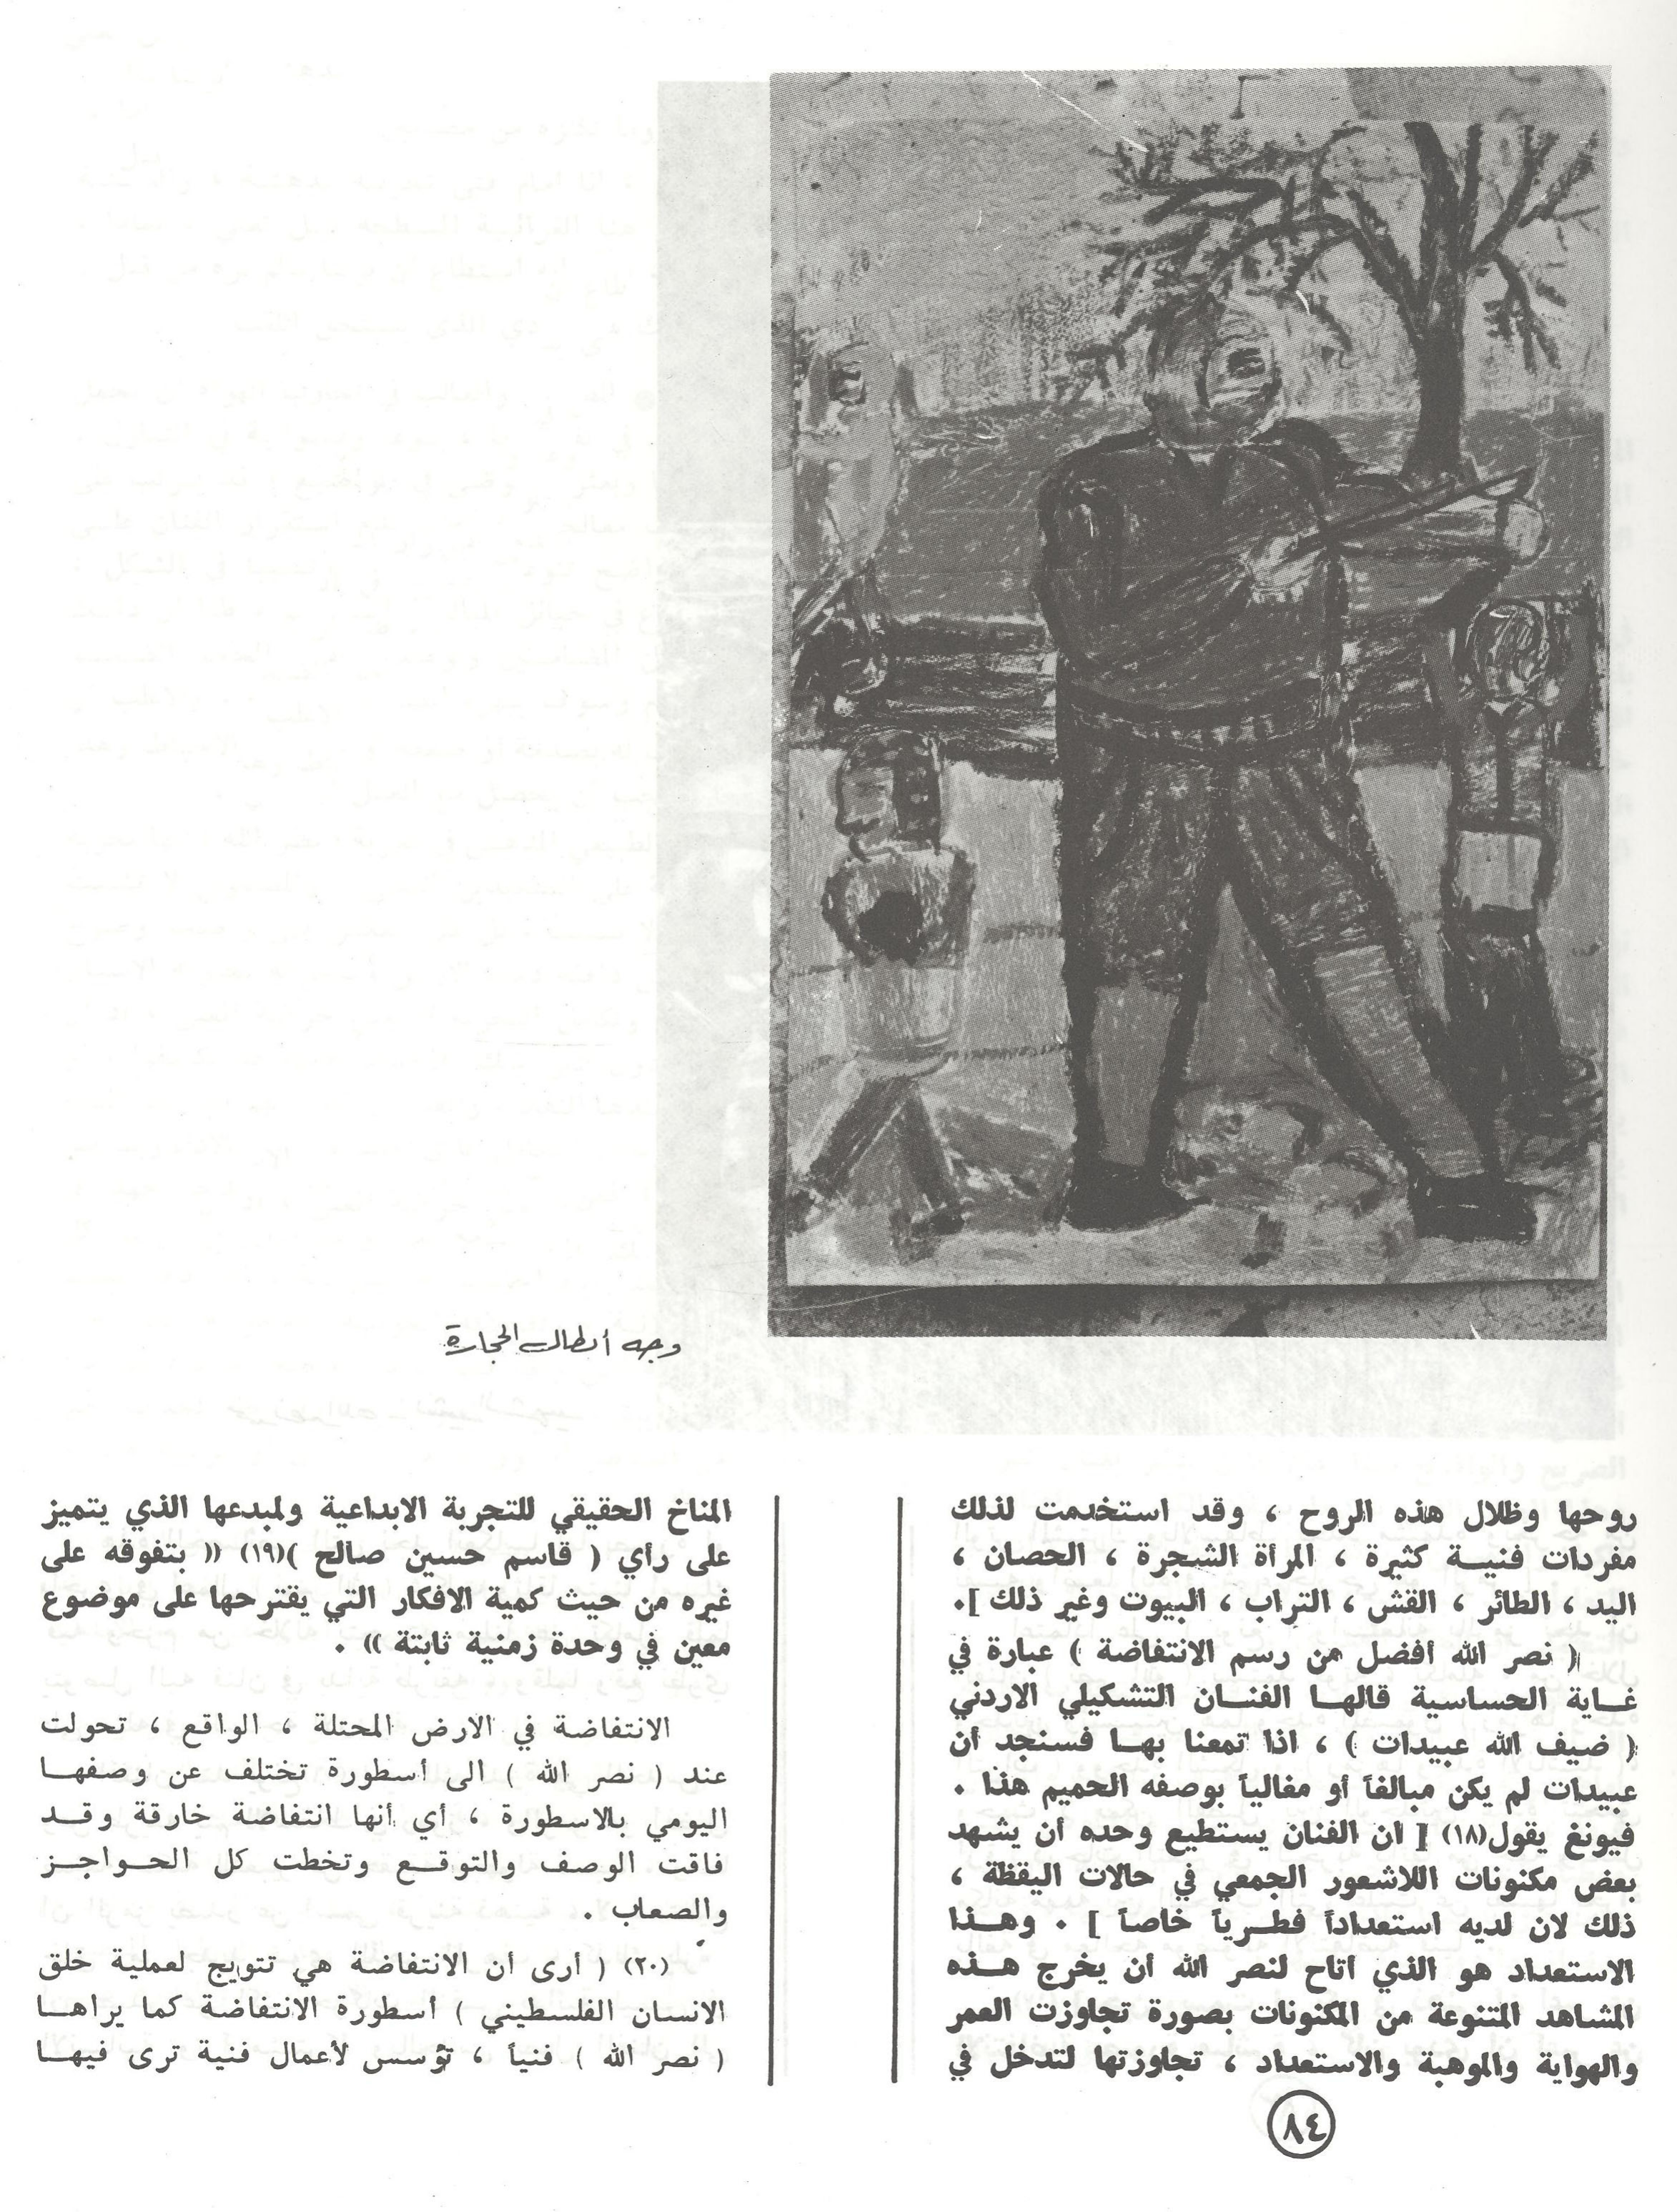 وجه أبطال الحجارة
روحها وظلال هذه الروح ، وقد استخدمت لذلك
مفردات فنيــة كثيرة ، المرأة الشجرة ، الحصان ،
اليد ، الطائر ، القش ، التراب ، البيوت وغير ذلك ].
( نصر الله أفضل من رسم الانتفاضة ) عبارة في
غــاية الحساسية قالهــا الفنــان التشكيلي الاردني
( ضيف الله عبيدات ) ، اذا تمعنا بهــا فسنجد أن
عبيدات لم يكن مبالغاً أو مغالياً بوصفه الحميم هذا .
فيونغ يقول(١٨) [ ان الفنان يستطيع وحده أن يشهد
بعض مكنونات اللاشعور الجمعي في حالات اليقظة ،
ذلك لان لديه استعداداً فطــرياً خاصاً ] . وهــذا
الاستعداد هو الذي اتاح لنصر الله أن يخرج هــذه
المشاهد المتنوعة من المكنونات بصورة تجاوزت العمر
والهواية والموهبة والاستعداد ، تجاوزتها لتدخل في
المناخ الحقيقي للتجربة الابداعية ولمبدعها الذي يتميز
على رأي ( قاسم حسين صالح )(١٩) (( بتفوقه على
غيره من حيث كمية الافكار التي يقترحها على موضوع
معين في وحدة زمنية ثابتة )) .
الانتفاضة في الارض المحتلة ، الواقع ، تحولت
عند ( نصر الله ) الى أسطورة تختلف عن وصفهــا
اليومي بالاسطورة ، أي أنها انتفاضة خارقة وقــد
فاقت الوصف والتوقــع وتخطت كل الحــواجــز
والصعاب .
(٢٠) ( أرى أن الانتفاضة هي تتويج لعملية خلق
الانسان الفلسطيني ) أسطورة الانتفاضة كما يراهــا
( نصر الله ) فنياً ، تؤسس لأعمال فنية ترى فيهــا
٨٤